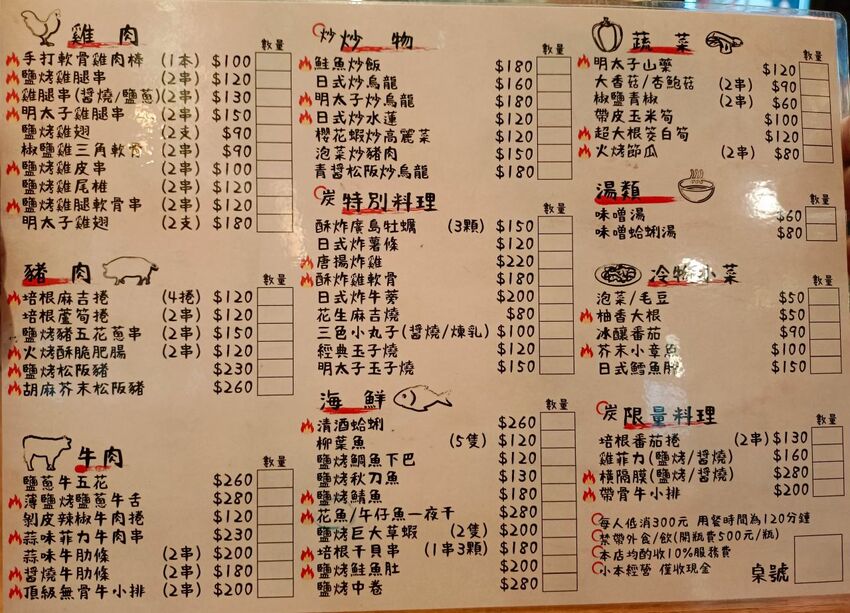 雞肉 數量
手打軟骨雞肉棒 (1本) $100
鹽烤雞腿串 (2串) $120
雞腿串(醬燒/鹽蔥)(2串) $130
明太子雞腿串 (2串) $150
鹽烤雞翅 (2支) $90
椒鹽雞三角軟骨 (2串) $90
鹽烤雞皮串 (2串) $100
鹽烤雞尾椎 (2串) $120
鹽烤雞腿軟骨串 (2串) $120
明太子雞翅 (2支) $180
豬肉 數量
培根麻吉捲 (4捲) $120
培根蘆筍捲 (2串) $120
鹽烤豬五花蔥串 (2串) $150
火烤酥脆肥腸 (2串) $120
鹽烤松阪豬 $230
胡麻芥末松阪豬 $260
牛肉 數量
鹽蔥牛五花 $260
薄鹽烤鹽蔥牛舌 $280
剝皮辣椒牛肉捲 $120
蒜味菲力牛肉串 $230
蒜味牛肋條 (2串) $200
醬燒牛肋條 (2串) $200
頂級無骨牛小排 (2串) $280
炒 炒物 數量
鮭魚炒飯 $180
日式炒烏龍 $160
明太子炒烏龍 $180
日式炒水蓮 $120
櫻花蝦炒高麗菜 $120
泡菜炒豬肉 $150
青醬松阪炒烏龍 $180
炭 特別料理 數量
酥炸廣島牡蠣 (3顆) $150
日式炸薯條 $120
唐揚炸雞 $220
酥炸雞軟骨 $180
日式炸牛蒡 $200
花生麻吉燒 $80
三色小丸子(醬燒/煉乳) $100
經典玉子燒 $120
明太子玉子燒 $150
海鮮 數量
清酒蛤蜊 $260
柳葉魚 (5隻) $120
鹽烤鯛魚下巴 $120
鹽烤秋刀魚 $120
鹽烤鯖魚 $180
花魚/午仔魚一夜干 $280
鹽烤巨大草蝦 (2隻) $200
培根干貝串 (1串3顆) $180
鹽烤鮭魚肚 $200
鹽烤中卷 $280
蔬菜 數量
明太子山藥 $120
大香菇/杏鮑菇 (2串) $90
椒鹽青椒 (2串) $60
帶皮玉米筍 $100
超大根茭白筍 $120
火烤節瓜 (2串) $80
湯類 數量
味噌湯 $60
味噌蛤蜊湯 $80
冷物小菜 數量
泡菜/毛豆 $50
柚香大根 $50
冰釀番茄 $90
芥末小章魚 $100
日式鱈魚肝 $150
炭 限量料理 數量
培根番茄捲 (2串) $130
雞菲力(鹽烤/醬燒) $160
橫隔膜(鹽烤/醬燒) $280
帶骨牛小排 $200
每人低消300元 用餐時間為120分鐘
禁帶外食/飲(開瓶費500元/瓶)
本店均酌收10%服務費
小本經營 僅收現金
桌號